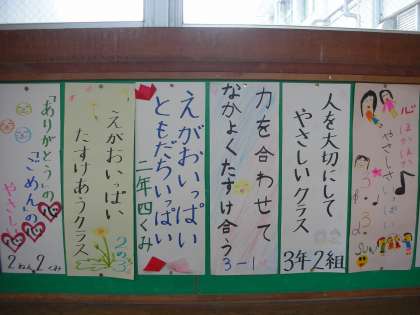 「ありがとう」の「ごめん」の
やさし
2ねん2くみ
えがおいっぱい
たすけあうクラス
2の3
えがおいっぱい
ともだちいっぱい
二年四くみ
力を合わせて
なかよくたすけ合う
3-1
人を大切にして
やさしいクラス
3年2組
心
やさしさいっぱい
3
3
SUN